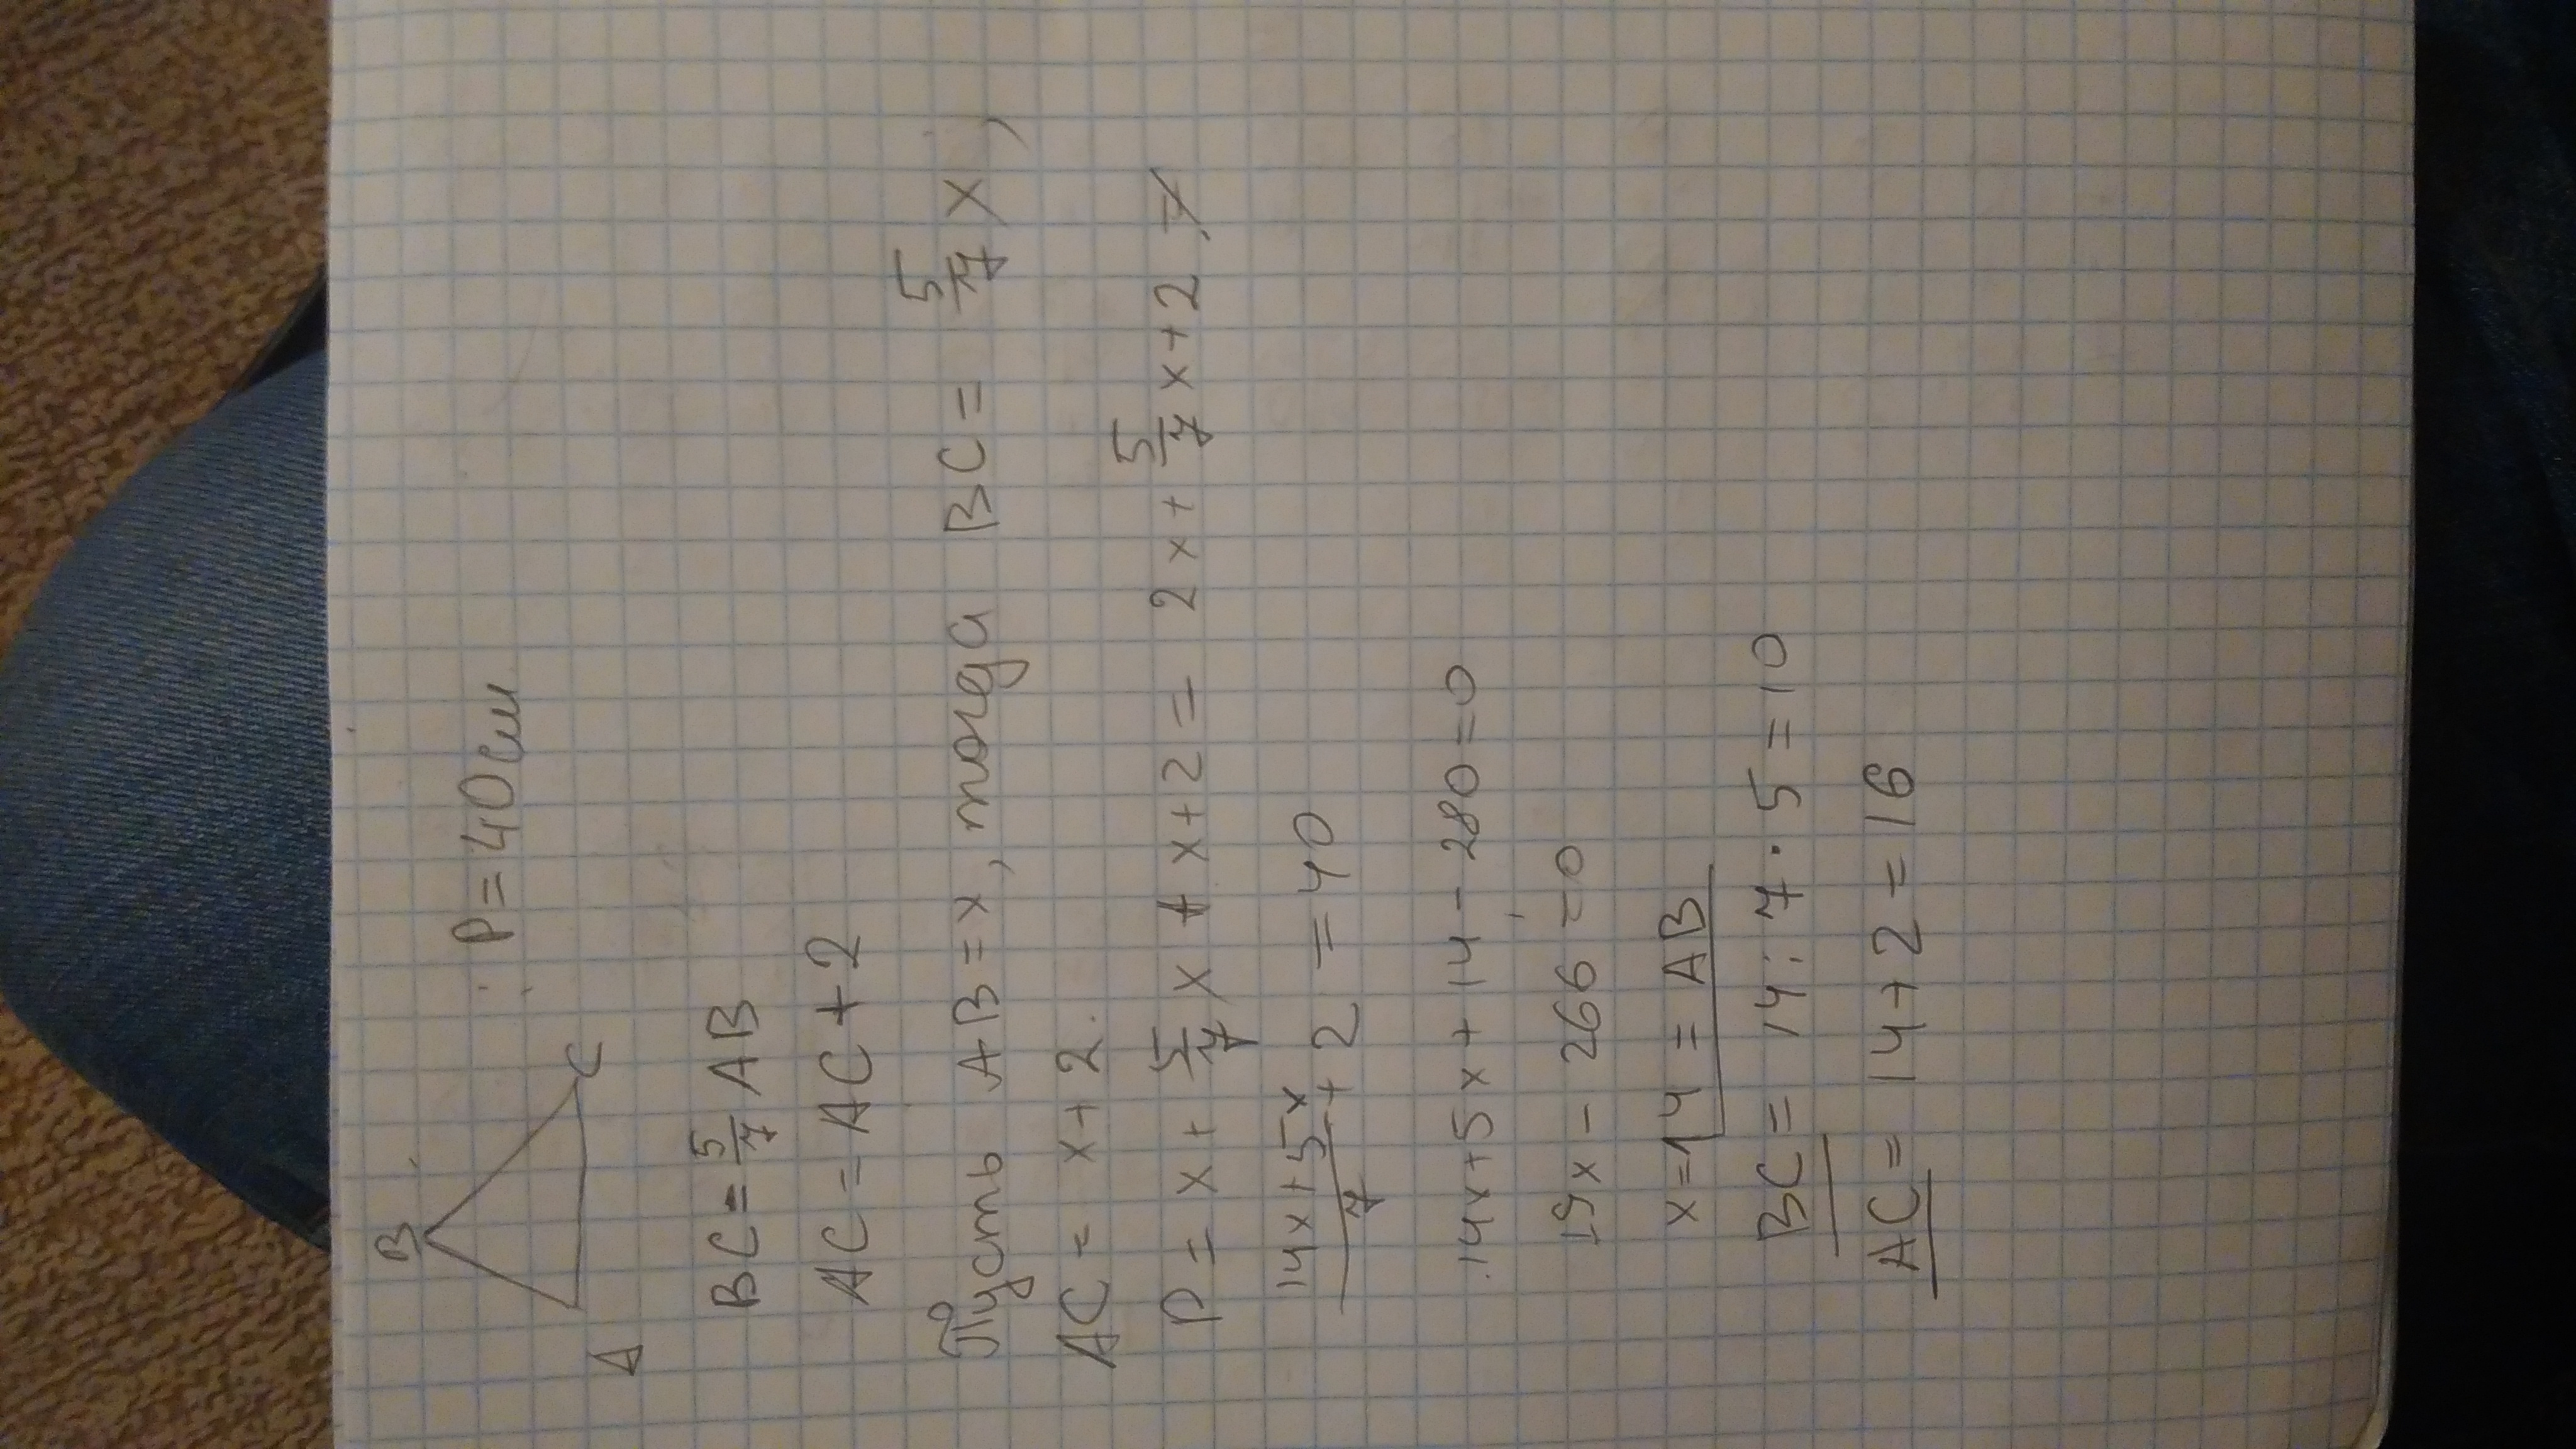 B
P = 40 см
A
C
BC = 5/7 AB
AC = AC + 2
Пусть AB = x, тогда BC = 5/7 x,
AC = x + 2.
P = x + 5/7 x + x + 2 = 2x + 5/7 x + 2
(14x + 5x)/7 + 2 = 40
14x + 5x + 14 - 280 = 0
19x - 266 = 0
x = 14 = AB
BC = 14 : 7 · 5 = 10
AC = 14 + 2 = 16